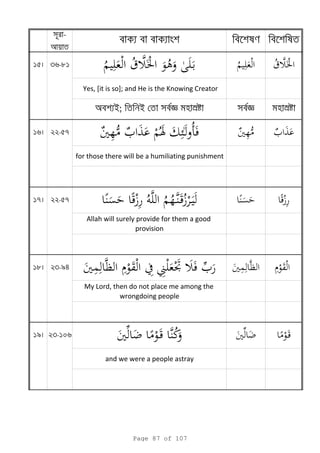 সূরা-আয়াত বাক্য বা বাক্যাংশ বিশেষণ বিশেষিত
১৫। ৩৬-৮১ بَلَىٰ وَهُوَ الْخَلَّاقُ الْعَلِيمُ الْعَلِيمُ الْخَلَّاقُ
Yes, [it is so]; and He is the Knowing Creator
অবশ্যই; তিনিই তো সর্বজ্ঞ মহাস্রষ্টা সর্বজ্ঞ মহাস্রষ্টা
১৬। ২২-৫৭ فَأُولَٰئِكَ لَهُمْ عَذَابٌ مُّهِينٌ مُّهِينٌ عَذَابٌ
for those there will be a humiliating punishment
১৭। ২২-৫৭ لَيَرْزُقَنَّهُمُ اللَّهُ رِزْقًا حَسَنًا حَسَنًا رِزْقًا
Allah will surely provide for them a good
provision
১৮। ২৩-৯৪ رَبِّ فَلَا تَجْعَلْنِي فِي الْقَوْمِ الظَّالِمِينَ الظَّالِمِينَ الْقَوْمِ
My Lord, then do not place me among the
wrongdoing people
১৯। ২৩-১০৬ وَكُنَّا قَوْمًا ضَالِّينَ ضَالِّينَ قَوْمًا
and we were a people astray
Page 87 of 107